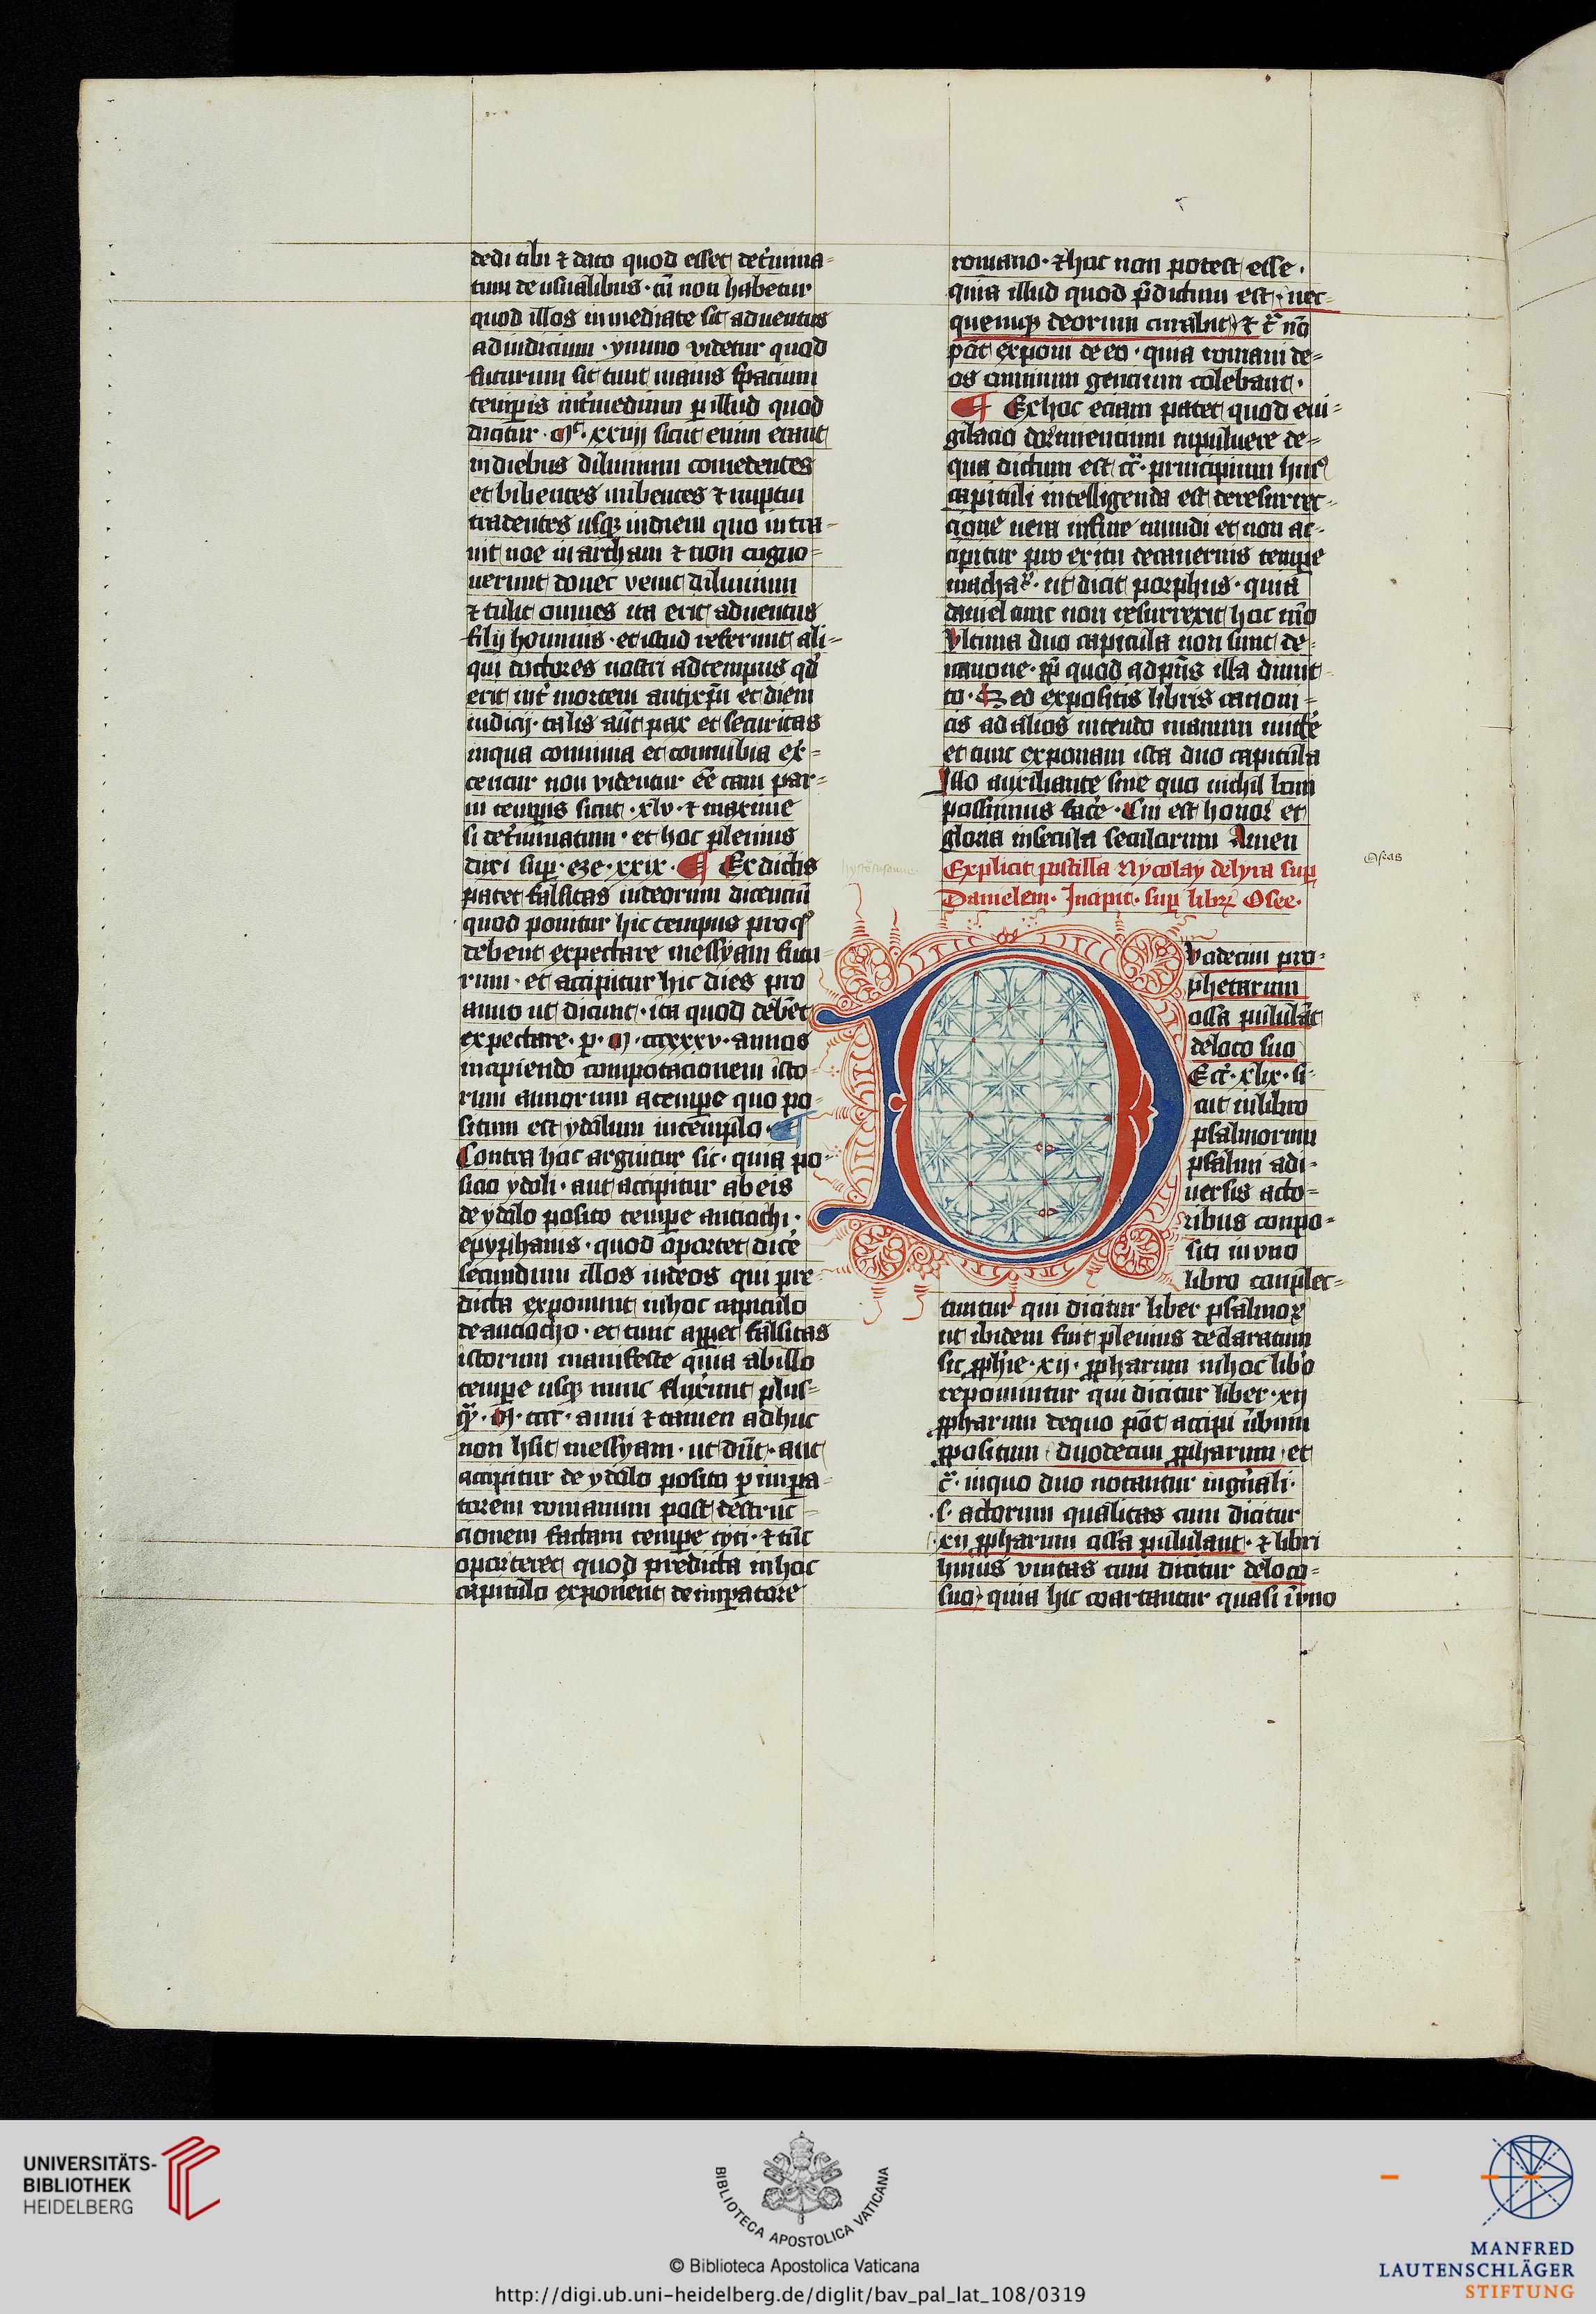 dedi tibi ⁊ dato quod esset det'mina-
tum de usualibus · cū non habetur
quod illos inmediate sit aduentus
ad iudicium · ymmo videtur quod
futurum sit tunc maius spacium
temp̄is int'medium p illud quod
dicitur · Mͭ · xxiiij sicut enim erant
in diebus diluuium comedentes
et bibentes nubentes ⁊ nuptui
tradentes usqꝫ in diem quo intra-
uit noe in archam ⁊ non cogno-
uerunt donec venit diluuium
⁊ tulit omnes ita erit aduentus
filij hominis · et istud referunt ali-
qui doctores nostri ad tempus qd'
erit int' mortem antixp̄i et diem
iudicij · talis aūt pax et securitas
in qua conuiuia et connubia ex-
centur non videntur eē tam par-
ui temp̄is sicut · xlv · ⁊ maxime
si det'minatum · et hoc plenius
dixi sup̄ · eze · xxix · ¶ Ex dictis
patet falsitas iudeorum dicenciū
quod ponitur hic tempus pro qͦ
debent expectare messyam futu-
rum · et accipitur hic dies pro
anno ut dicunt · ita quod debēt
expectare · p · M · cccxxxv · annos
incipiendo compotacionem isto-
rum annorum a temp̄e quo po-
situm est ydolum in templo · ¶
Contra hoc arguitur sic · quia po-
sicio ydoli · aut accipitur ab eis
de ydolo posito temp̄e antiochi ·
epyphanis · quod oportet dicē
secundum illos iudeos qui pre-
dicta exponunt in hoc capitulo
de antiocho · et tunc apꝑet falsitas
istorum manifeste quia ab illo
temp̄e usqꝫ nunc fluxerunt plus-
qͣ · M · cccc · anni ⁊ tamen adhuc
non hūt messyam · ut dnt̄ · aut
accipitur de ydolo posito p impa-
torem romanum post destruc-
cionem factam temp̄e tyti · ⁊ tūc
oporteret quod predicta in hoc
capitulo exponent de imperatore
romano · ⁊ hoc non potest esse ·
quia illud quod p̄dictum est · nec-
quemqꝫ deorum curabit ⁊ c̄ nō
pōt exponi de eo · quia romani de-
os omnium gencium colebant ·
¶ Ex hoc eciam patet quod eui-
gilacio dormiencium in puluere de-
qua dictum est cͣ · principium huiꝰ
capituli intelligenda est de resurrec-
cione uera in fine mundi et non ac-
cipitur pro exitu de cauernis temp̄e
machaꝝ · ut dicit porphus · quia
daniel tunc non resurrexit hoc mō
Vltima duo capitula non sunt de-
canone · pp̄ quod ad p̄ns illa dimit-
to · Sed expositis libris canoni-
cis ad alios intendo manum mittē
et tunc exponam ista duo capitula
Illo auxiliante sine quo nichil boni
possumus facē · Cui est honor et
gloria in secula seculorum Amen
Explicit postilla Nycolay de lyra sup̄
Danielem · Incipit · sup̄ libꝝ Osee ·
hystͣ susanne
Oseas
Duodecim pro-
phetarum
ossa pululāt
de loco suo
Eccͣ · xlix · si-
cut in libro
psalmorum
psalmi a di-
uersis acto-
ribus conpo-
siti in vno
libro conplec-
tuntur qui dicitur liber psalmoꝝ
ut ibidem fuit plenius declaratum
sic ꝓphie · xij · ꝓpharum in hoc libͦ
reponuntur qui dicitur liber · xij
ꝓpharum de quo pōt accipi ūbum
ꝓpositum duodecim ꝓpharum et
cͣ · in quo duo notantur in gn̄ali ·
·s· actorum qualitas cum dicitur
·xij ꝓpharum ossa pululant · ⁊ libri
huius vnitas cum dicitur de loco-
suo · quia hic coartantur quasi ī vno
UNIVERSITÄTS-
BIBLIOTHEK
HEIDELBERG
BIBLIOTECA APOSTOLICA VATICANA
© Biblioteca Apostolica Vaticana
http://digi.ub.uni-heidelberg.de/diglit/bav_pal_lat_108/0319
MANFRED
LAUTENSCHLÄGER
STIFTUNG